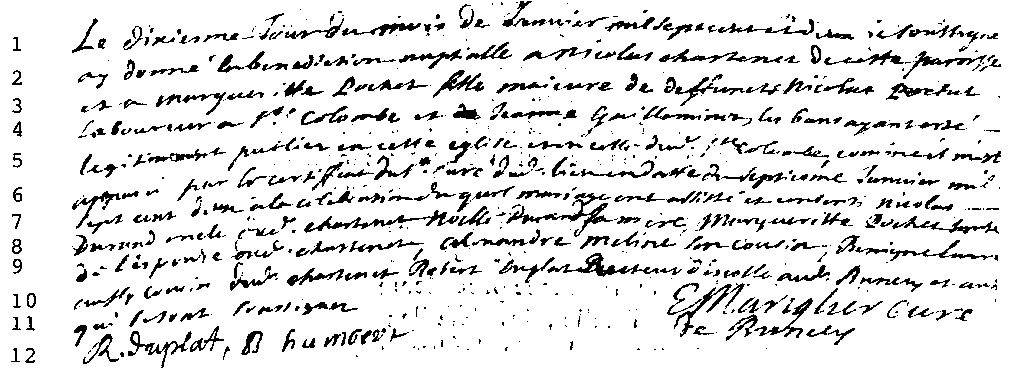 1 Le dixiesme Jour du mois de Janvier mil sept cent et dix ie soussigne
2 ay donné la benediction nuptialle a nicolas chartenet de cette paroisse
3 et a margueritte Pochet fille maieure de deffuncts Nicolas Pochet
4 Laboureur a Ste Colombe et de Jeanne Guilleminot, les bans ayant esté
5 legitimement publiez en cette eglise et en celle dud. Ste Colombe, comme il m'est
6 apparu par le certificat du Sr Curé dud. lieu en datte du septiesme Janvier mil
7 sept cent dix a la celebration duquel mariage ont assisté et consenti nicolas
8 Durand oncle dud. chartenet Noelle Durand sa mere, Margueritte Pochet tante
9 de l'espouse dud. chartenet, alexandre meline son cousin, Benigne
cousin dud. chartenet Robert Duplat Recteur d'escolle aud. Runcey et
10 qui se sont soussignez
11 E Marighier Curé
12 R. duplat, B humbert de Runcey